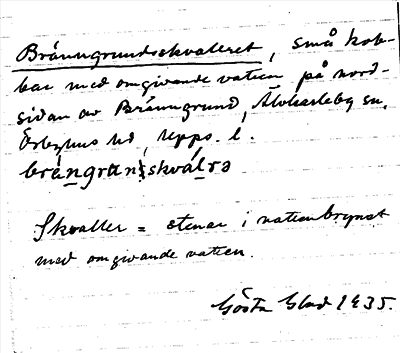 Bränngrundsskvalleret, små kob-
bar med omgivande vatten på nord-
sidan av Bränngrund, Älvkarleby sn,
Örbyhus hd, Upps. l.
Skvaller = stenar i vattenbrynet
med omgivande vatten.
Gösta Glad 1935.